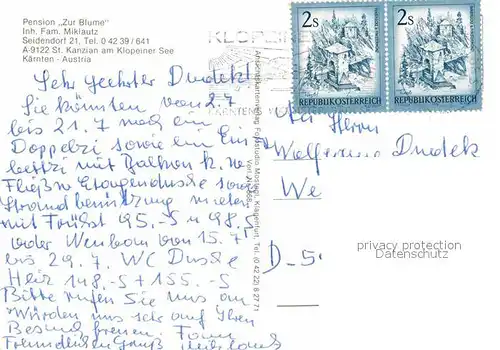 Pension „Zur Blume"
Inh. Fam. Miklautz
Seidendorf 21, Tel. 0 42 39 / 641
A-9122 St. Kanzian am Klopeiner See
Kärnten - Austria
Sehr geehrter Dudek!
Sie könnten von 2.7
bis 21.7 noch ein
Doppelzi sowie ein Ein
bettzi mit Balkon k. w.
Fließw Etagendusche sowie
Strandbenützung mieten
mit Frühst 95.-S u 98.S
oder Neubau von 15.7
bis 29.7. WC Dusche
Heiz 148.-S + 155.-S
Bitte rufen Sie uns an
Würden uns sehr auf Ihren
Besuch freuen. Fam
Freundlichen Gruß Miklautz
KLOPEINER
Ansichtskartenverlag Fotostudio Klagenfurt, Tel. (0 42 22) 8 27 71
2s
REPUBLIK ÖSTERREICH
2s
REPUBLIK ÖSTERREICH
An Herrn
Wolfgang Dudek
We
D-5
privacy protection
Datenschutz